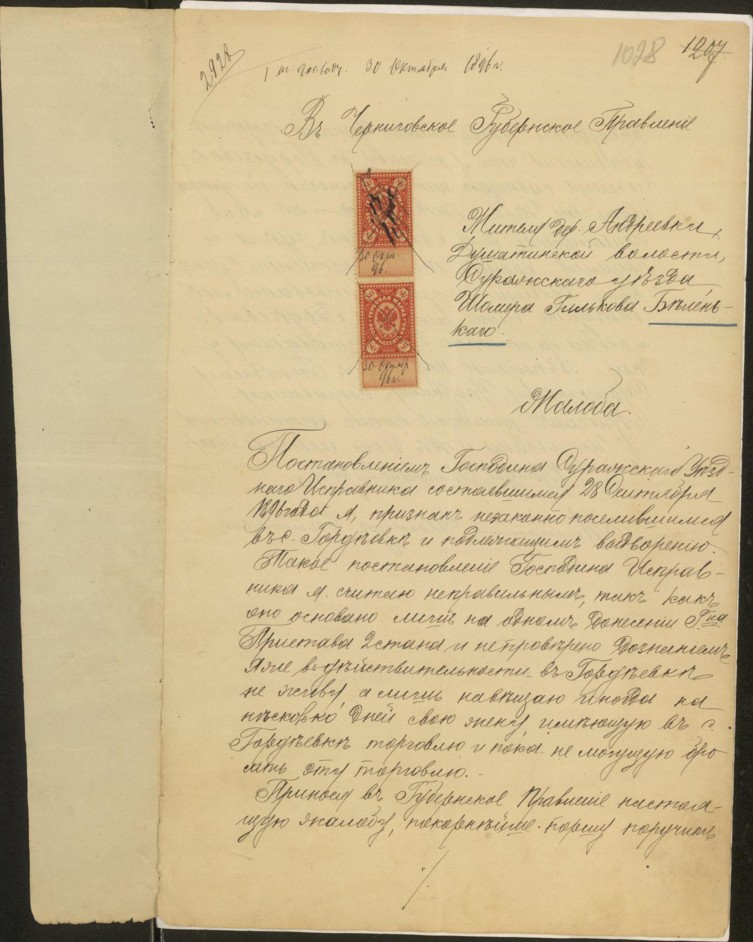 2928
1028 1207
30 Октября 1896 г.
Въ Черниговское Губернское Правленіе
30 Октяб.
96.
30 Октяб.
96 г.
Жителя дер. Андреевки,
Душатинской волости,
Суражскаго уѣзда
Шолира Гилькова Бѣлень-
каго.
Жалоба.
Постановленіемъ Господина Суражскаго Уѣзд-
наго Исправника состоявшимся 28 Сентября
1896 года я, признанъ незаконно поселившимся
въ с. Гордѣевкѣ и подлежащимъ водворенію.
Такое постановленіе Господина Исправ-
ника я считаю неправильнымъ, такъ какъ
оно основано лишь на одномъ донесеніи Г-на
Пристава 2 стана и не провѣрено дознаніемъ.
Я же въ дѣйствительности въ Гордѣевкѣ
не живу, а лишь навѣщаю иногда на
нѣсколко дней свою жену, имѣющую въ с.
Гордѣевкѣ торговлю и пока не могущую бро-
сить эту торговлю.
Принося въ Губернское Правленіе настоя-
щую жалобу, покорнѣйше прошу поручить